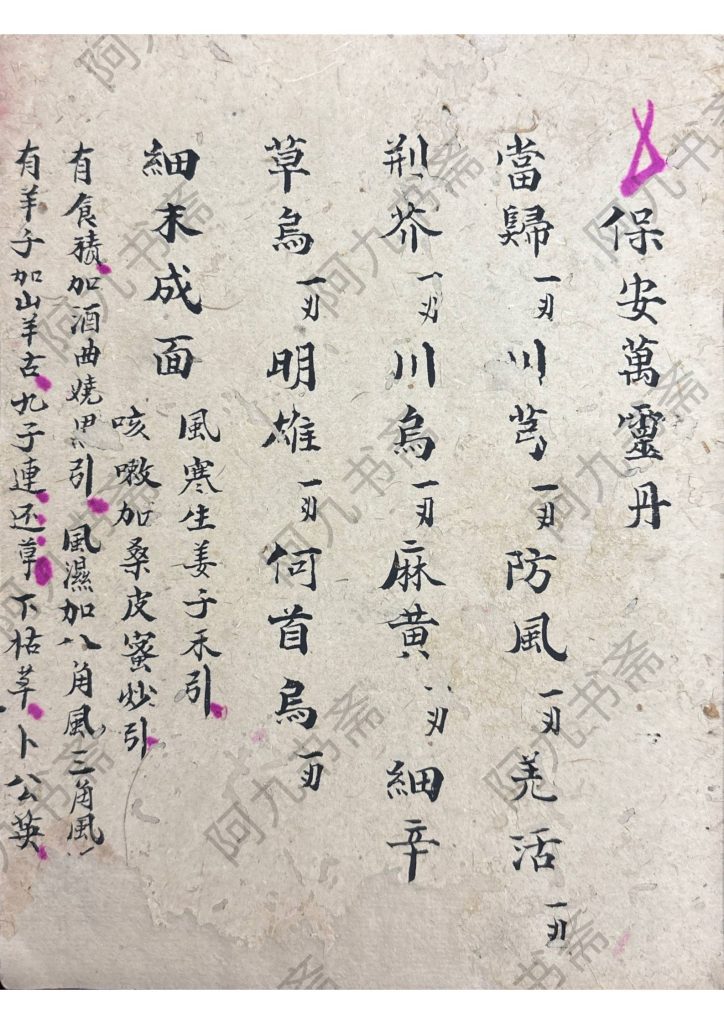 保安萬靈丹
當歸一刄川芎一刄防風一刄羌活一刄
荆芥一刄川烏一刄麻黄八刄細辛
草烏一刄明雄一刄何首烏一刄
細末成面
風寒生姜子禾引
咳嗽加桑皮蜜炒引
有食積加酒曲燒黑引風濕加八角風三角風
有羊子加山羊古九子連还草下枯草卜公英
阿九书斋